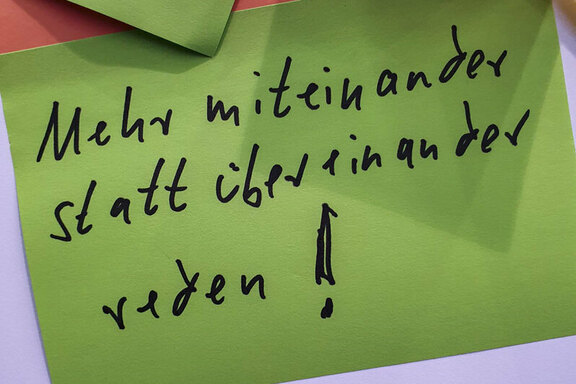 Mehr miteinander
statt übereinander
reden!